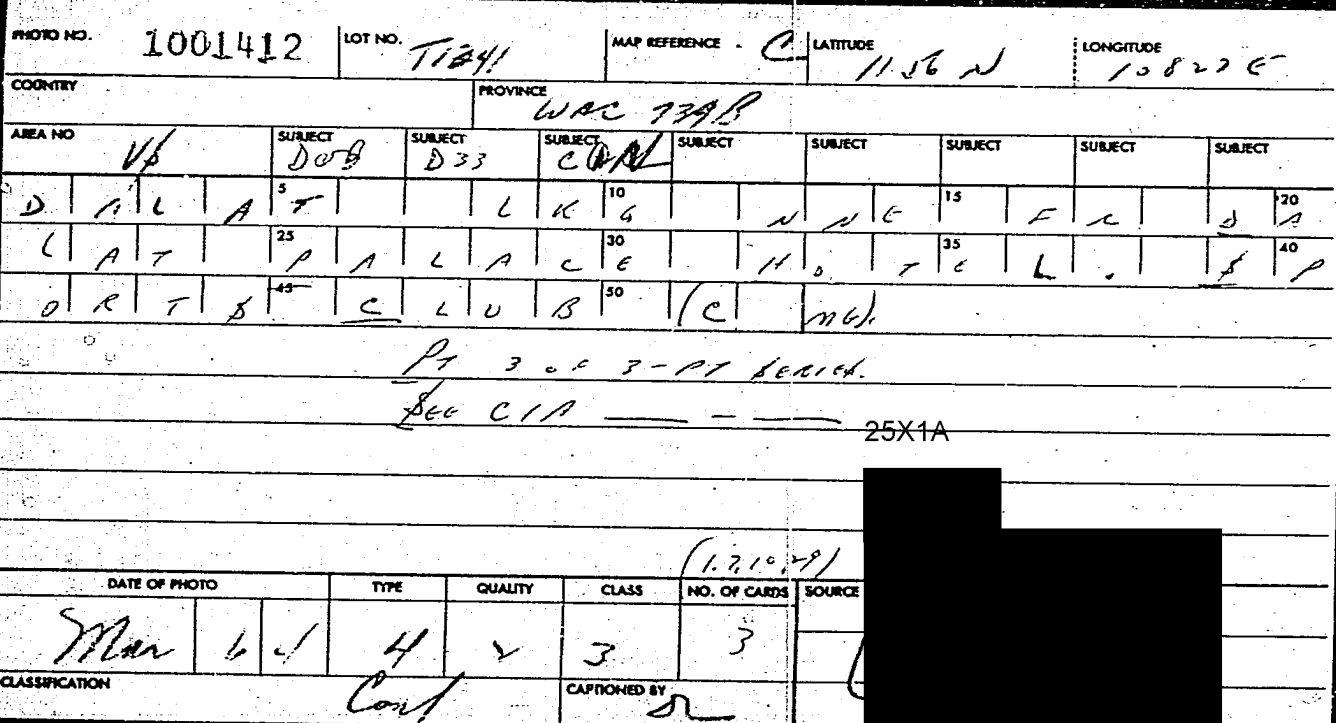 PHOTO NO. 1001412 LOT NO. MAP REFERENCE - C LATITUDE 11 56 N LONGITUDE 108 27 E
COUNTRY PROVINCE WAC 739B
AREA NO SUBJECT SUBJECT D33 SUBJECT SUBJECT SUBJECT SUBJECT SUBJECT SUBJECT
5 10 15 20
DALAT LKG NNE FR DA
25 30 35 40
LAT PALACE HOTEL. SP
45 50
ORTS CLUB (C MG).
PT 3 OF 3-PT SERIES.
SEE CIA ___ - ___
25X1A
(1.7,10,29)
DATE OF PHOTO TYPE QUALITY CLASS NO. OF CARDS SOURCE
Mar 6 4 3 3
CLASSIFICATION Conf CAPTIONED BY